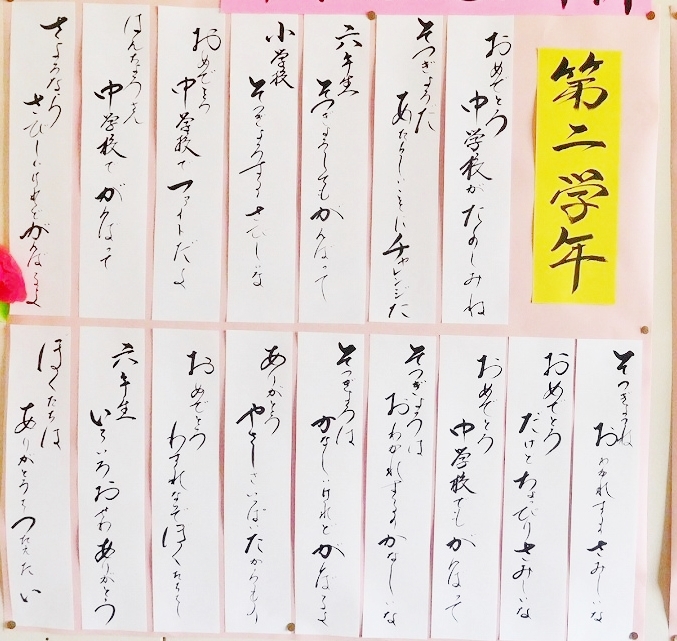 第二学年
おめでとう 中学校がたのしみね
そつぎょうだ あたらしいことにチャレンジだ
六年生 そつぎょうしてもがんばって
小学校 そつぎょうするの さびしいな
おめでとう 中学校で ファイトだよ
はんちょうさん 中学校で がんばって
さようなら さびしいけれど がんばるよ
そつぎょうね おわかれするの さみしいな
おめでとう だけどちょぴりさみしいな
おめでとう 中学校でも がんばって
そつぎょうは おわかれするの かなしいな
そつぎょうは かなしいけれど がんばるよ
ありがとう やさしさいっぱい たからもの
おめでとう わすれないで ぼくたちを
六年生 いろいろおせわ ありがとう
ぼくたちは ありがとうを つたえたい